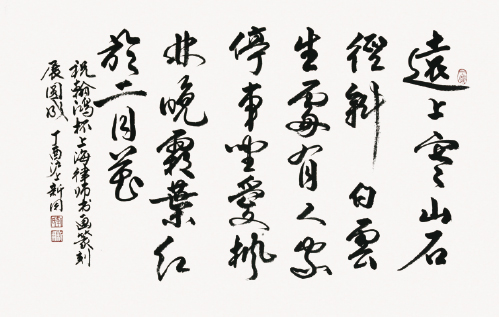 遠上寒山石
徑斜白雲
生處有人家
停車坐愛楓
林晚霜葉紅
於二月花
祝翰鴻杯上海律师书画篆刻
展圆成 丁酉